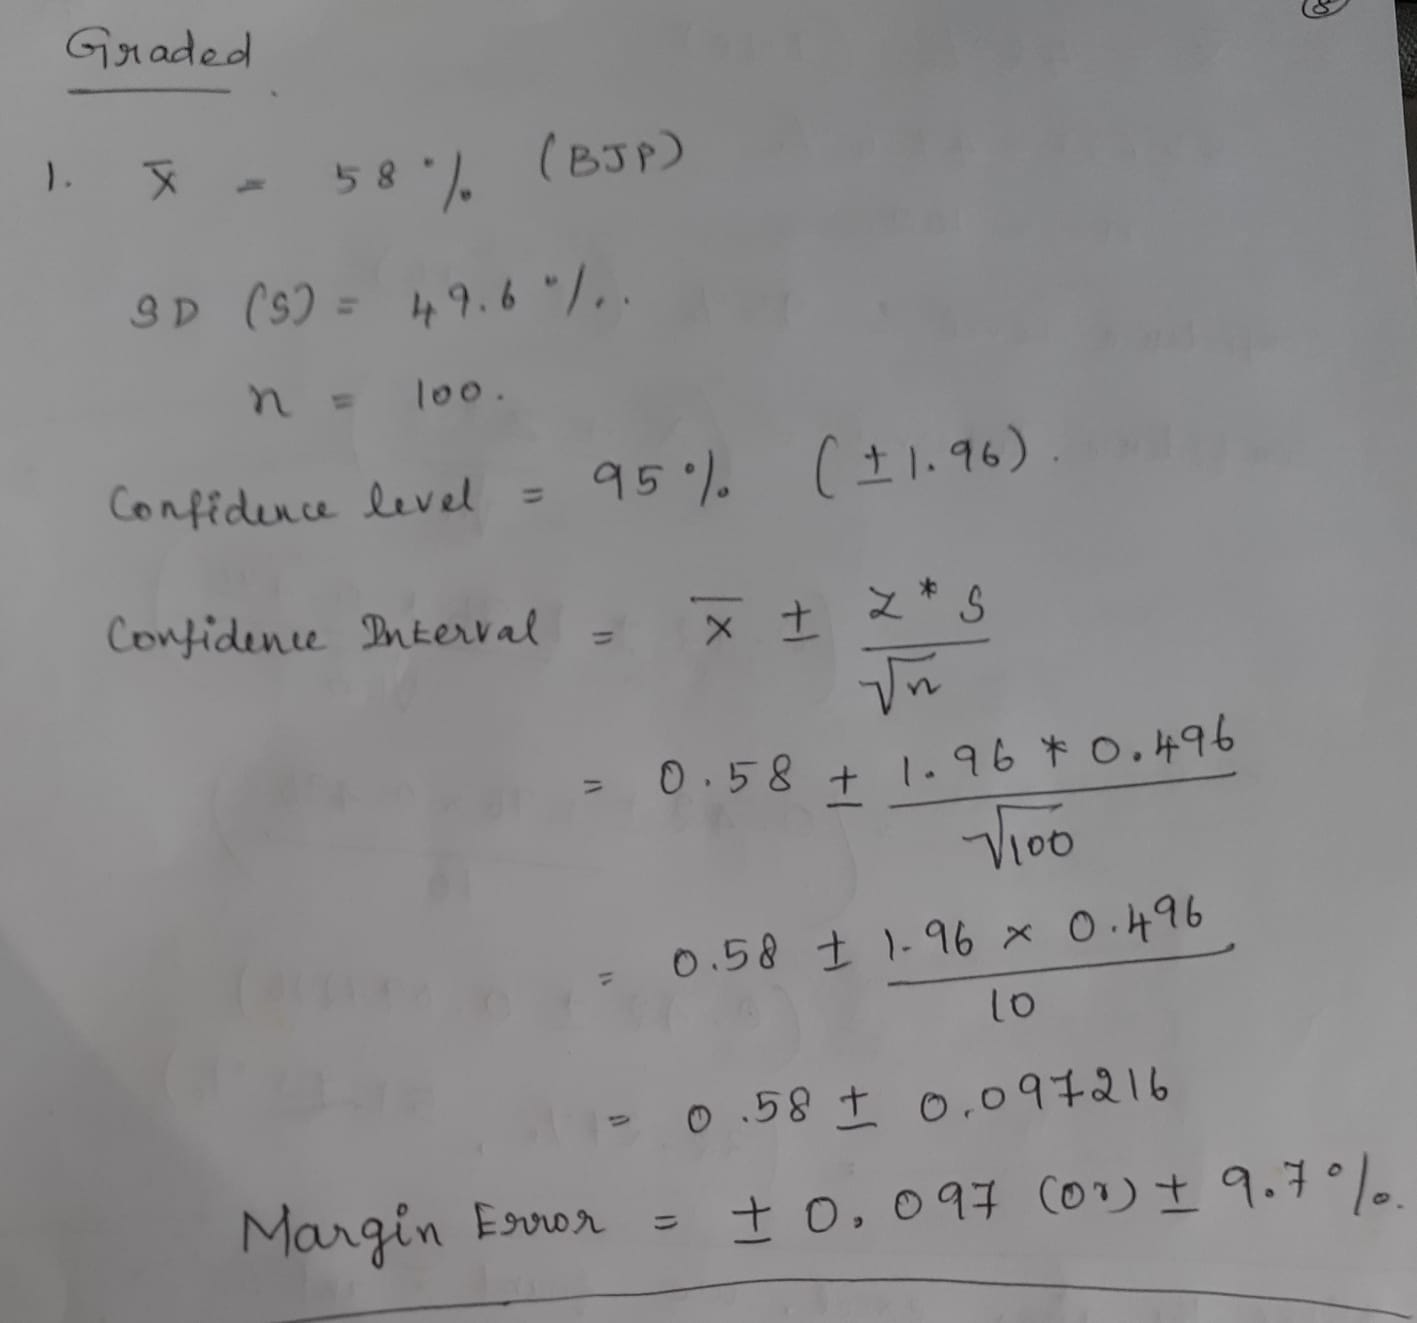 8
Graded
1. x̄ = 58% (BJP)
SD (S) = 49.6%.
n = 100.
Confidence level = 95% (±1.96).
Confidence Interval = x̄ ± Z * S
√n
= 0.58 ± 1.96 * 0.496
√100
= 0.58 ± 1.96 × 0.496
10
= 0.58 ± 0.097216
Margin Error = ± 0.097 (or) ± 9.7%.